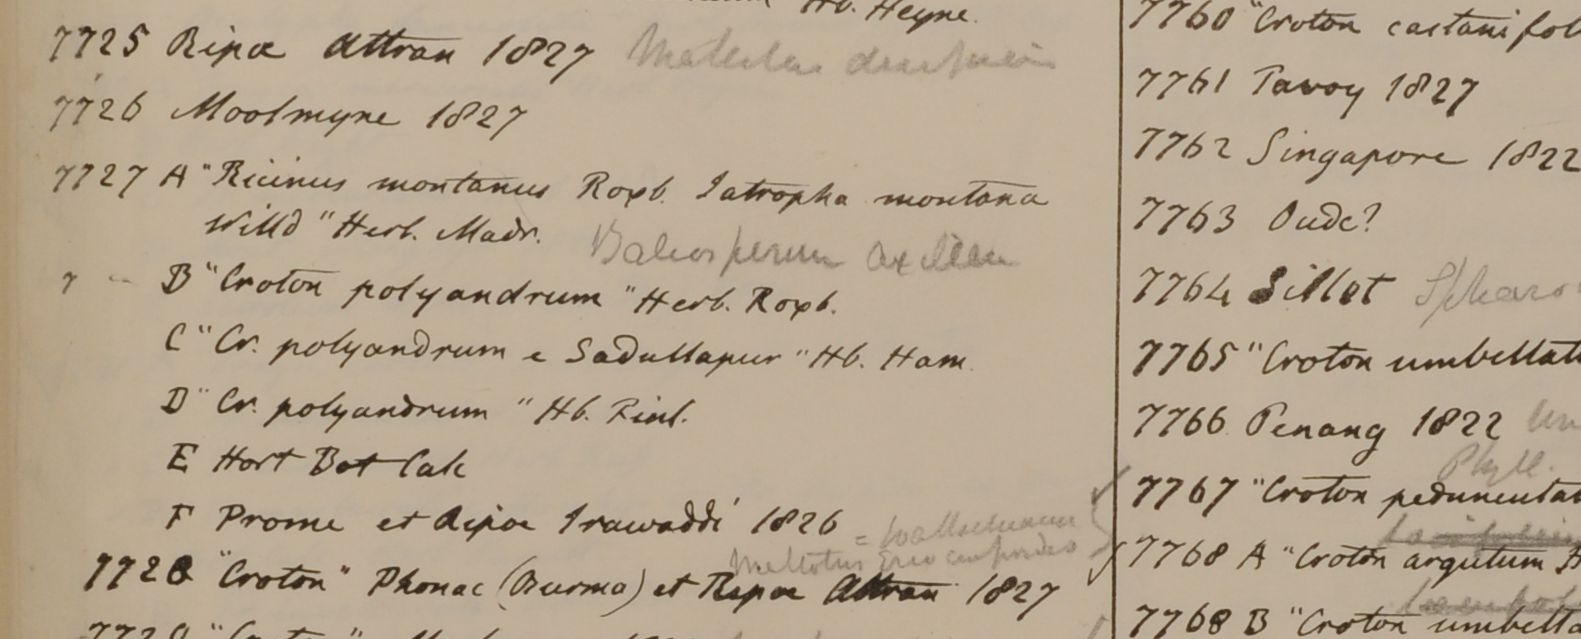 Hb. Heyne.
7725 Ripæ Attran 1827
7726 Moolmyne 1827
7727 A "Ricinus montanus Roxb. Iatropha montana
Willd" Herb. Madr. Baliospermum axillare
B "Croton polyandrum" Herb. Roxb.
C "Cr. polyandrum e Sadullapur" Hb. Ham.
D "Cr. polyandrum" Hb. Finl.
E Hort Bot Calc
F Prome et Ripæ Irawaddi 1826
7728 "Croton" Phonac (Burma) et Ripæ Attran 1827
7760 "Croton castanifol
7761 Tavoy 1827
7762 Singapore 1822
7763 Oude?
7764 Sillet
7765 "Croton umbellat
7766 Penang 1822
Phyll.
7767 "Croton peduncula
7768 A "Croton argutum
7768 B "Croton umbella